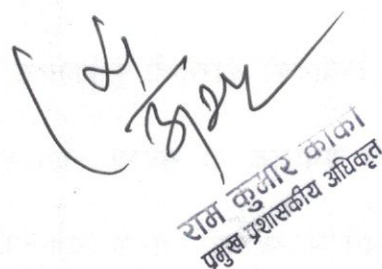 राम कुमार काका
प्रमुख प्रशासकीय अधिकृत